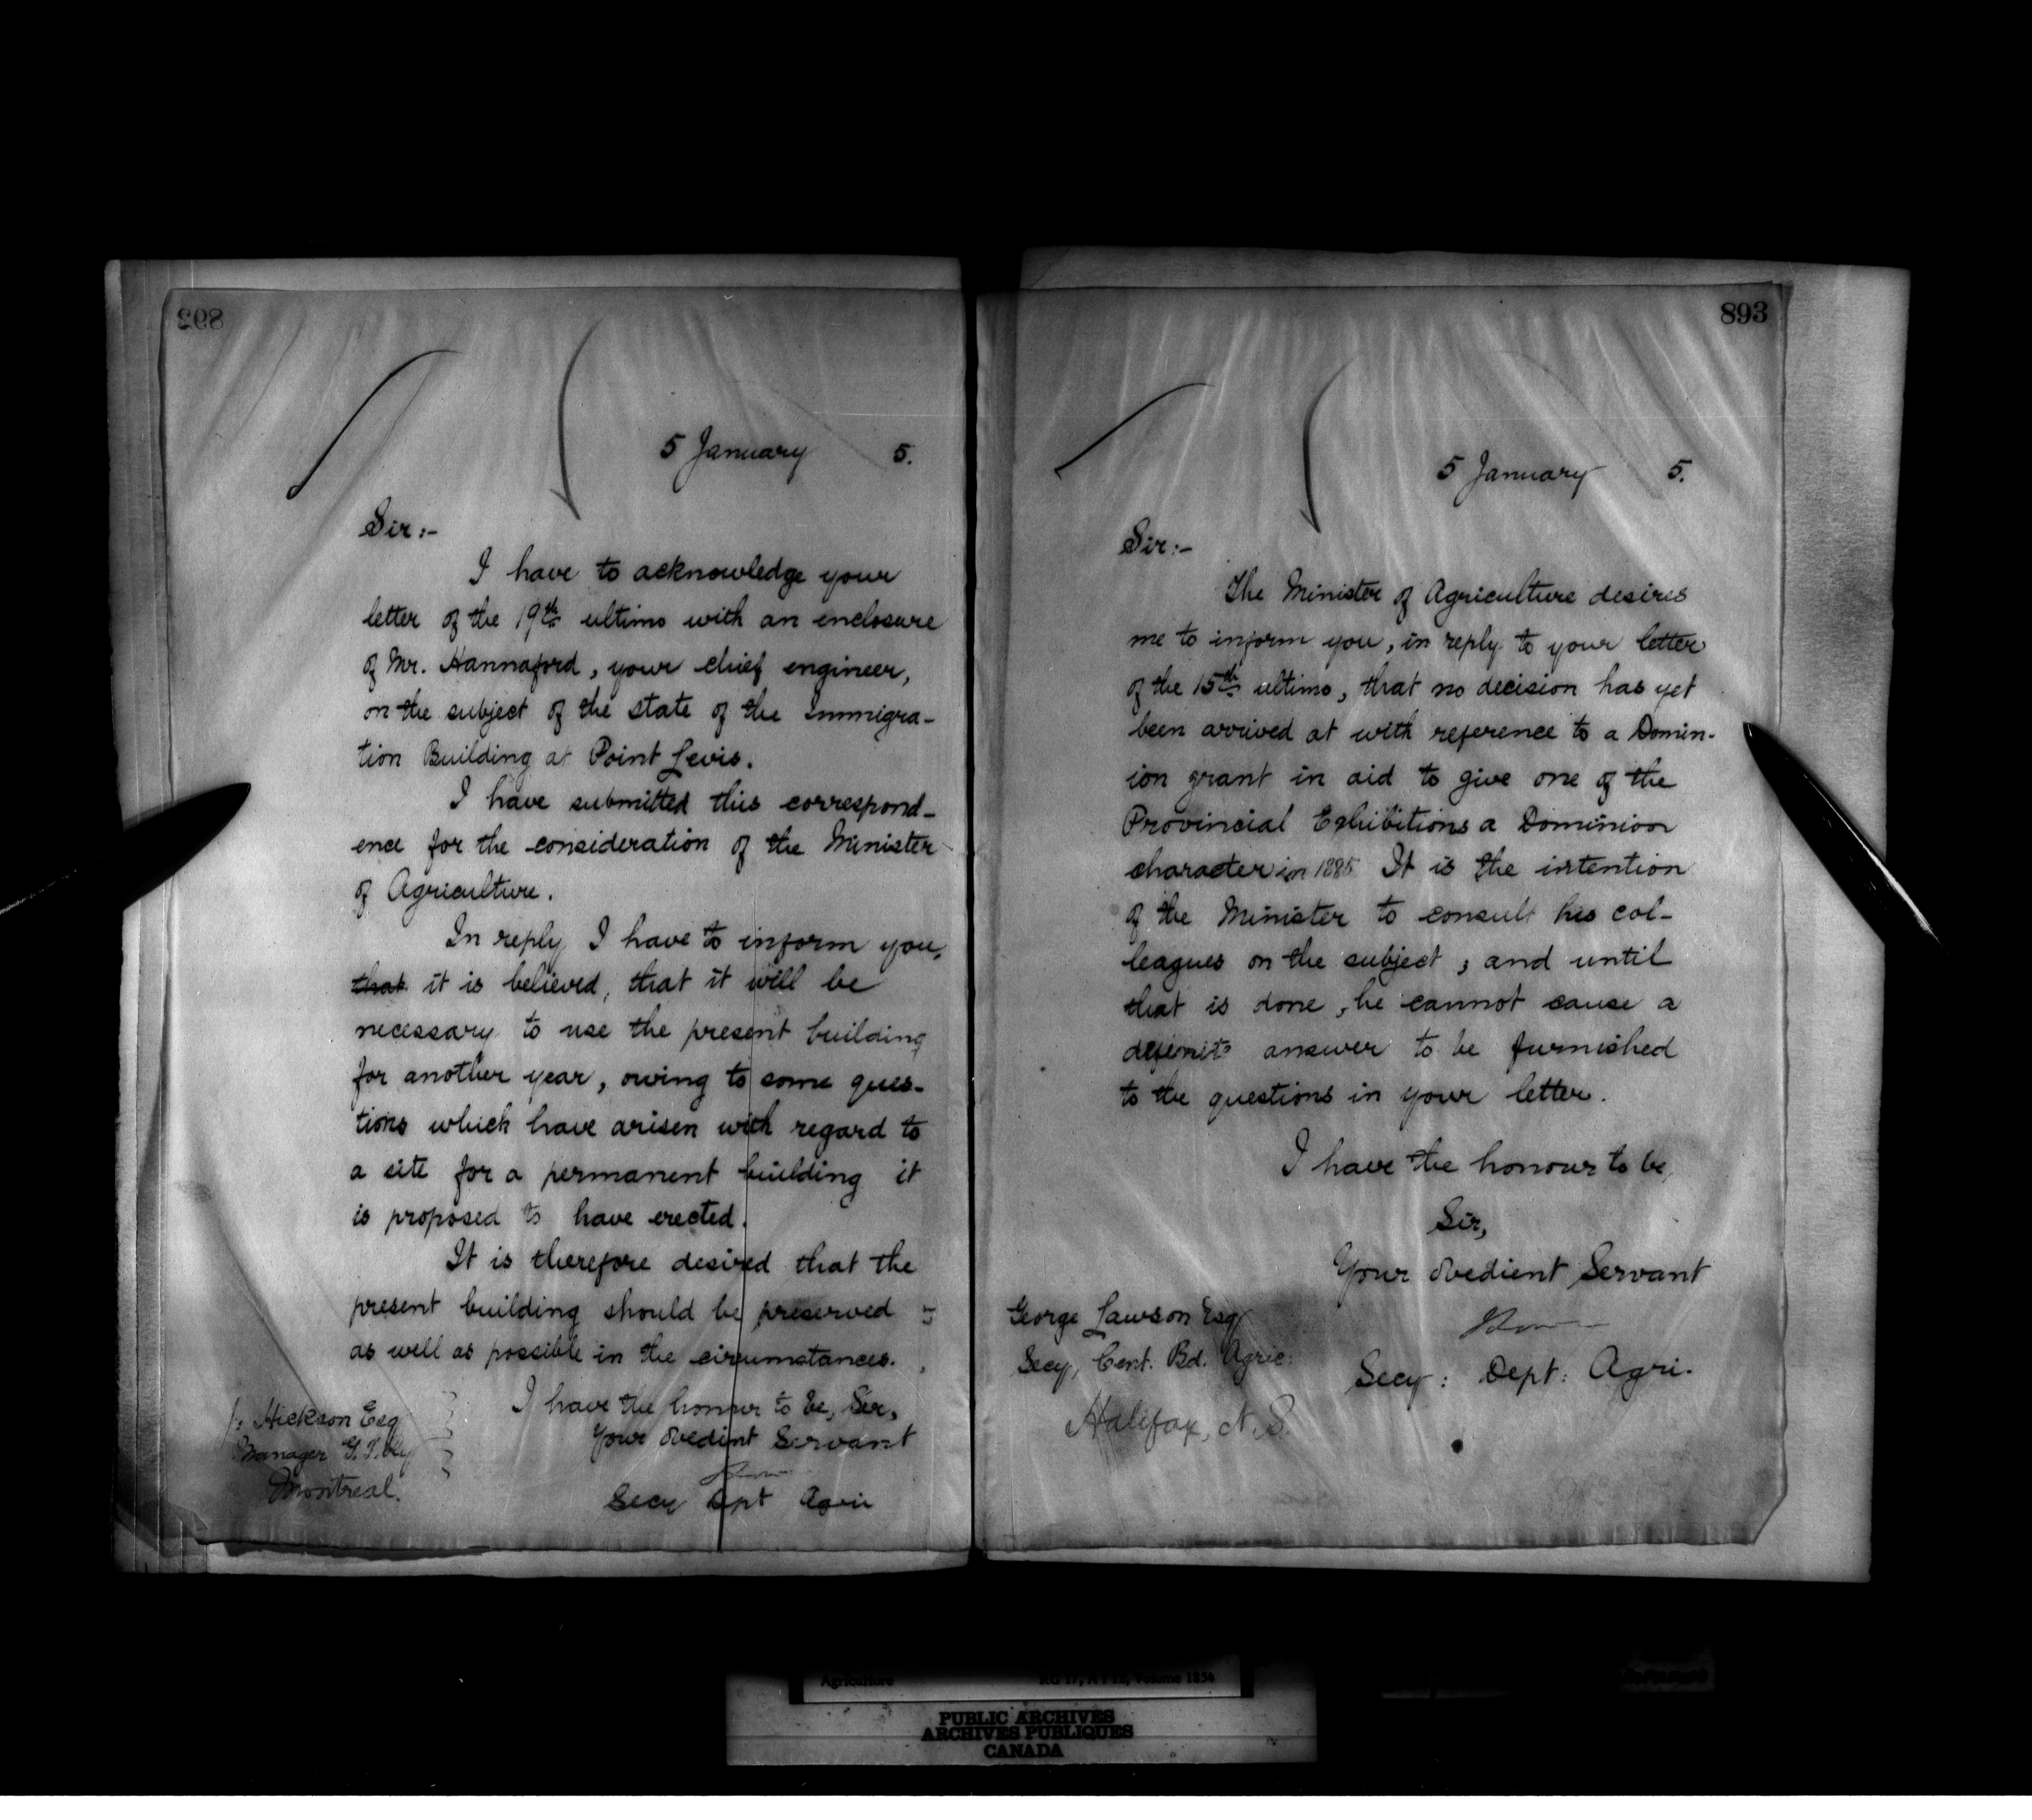 892
5 January 5.
Sir:-
I have to acknowledge your
letter of the 19th ultimo with an enclosure
of Mr. Hannaford, your chief engineer,
on the subject of the state of the Immigra-
tion Building at Point Levis.
I have submitted this correspond-
ence for the consideration of the Minister
of Agriculture.
In reply I have to inform you,
that it is believed, that it will be
necessary to use the present building
for another year, owing to some ques-
tions which have arisen with regard to
a site for a permanent building it
is proposed to have erected.
It is therefore desired that the
present building should be preserved
as well as possible in the circumstances.
I have the honour to be, Sir,
Your obedient Servant
Secy Dept Agri
Hickson Esq
Manager G.T. Ry
Montreal.
893
5 January 5.
Sir:-
The Minister of Agriculture desires
me to inform you, in reply to your letter
of the 15th ultimo, that no decision has yet
been arrived at with reference to a Domin-
ion grant in aid to give one of the
Provincial Exhibitions a Dominion
character in 1885 It is the intention
of the Minister to consult his col-
leagues on the subject, and until
that is done, he cannot cause a
definite answer to be furnished
to the questions in your letter.
I have the honour to be,
Sir,
Your obedient Servant
Secy: Dept: Agri.
George Lawson Esq
Secy, Cent. Bd. Agric:
Halifax, N.S.
Agriculture RG 17, A I 12, Volume 1654
PUBLIC ARCHIVES
ARCHIVES PUBLIQUES
CANADA